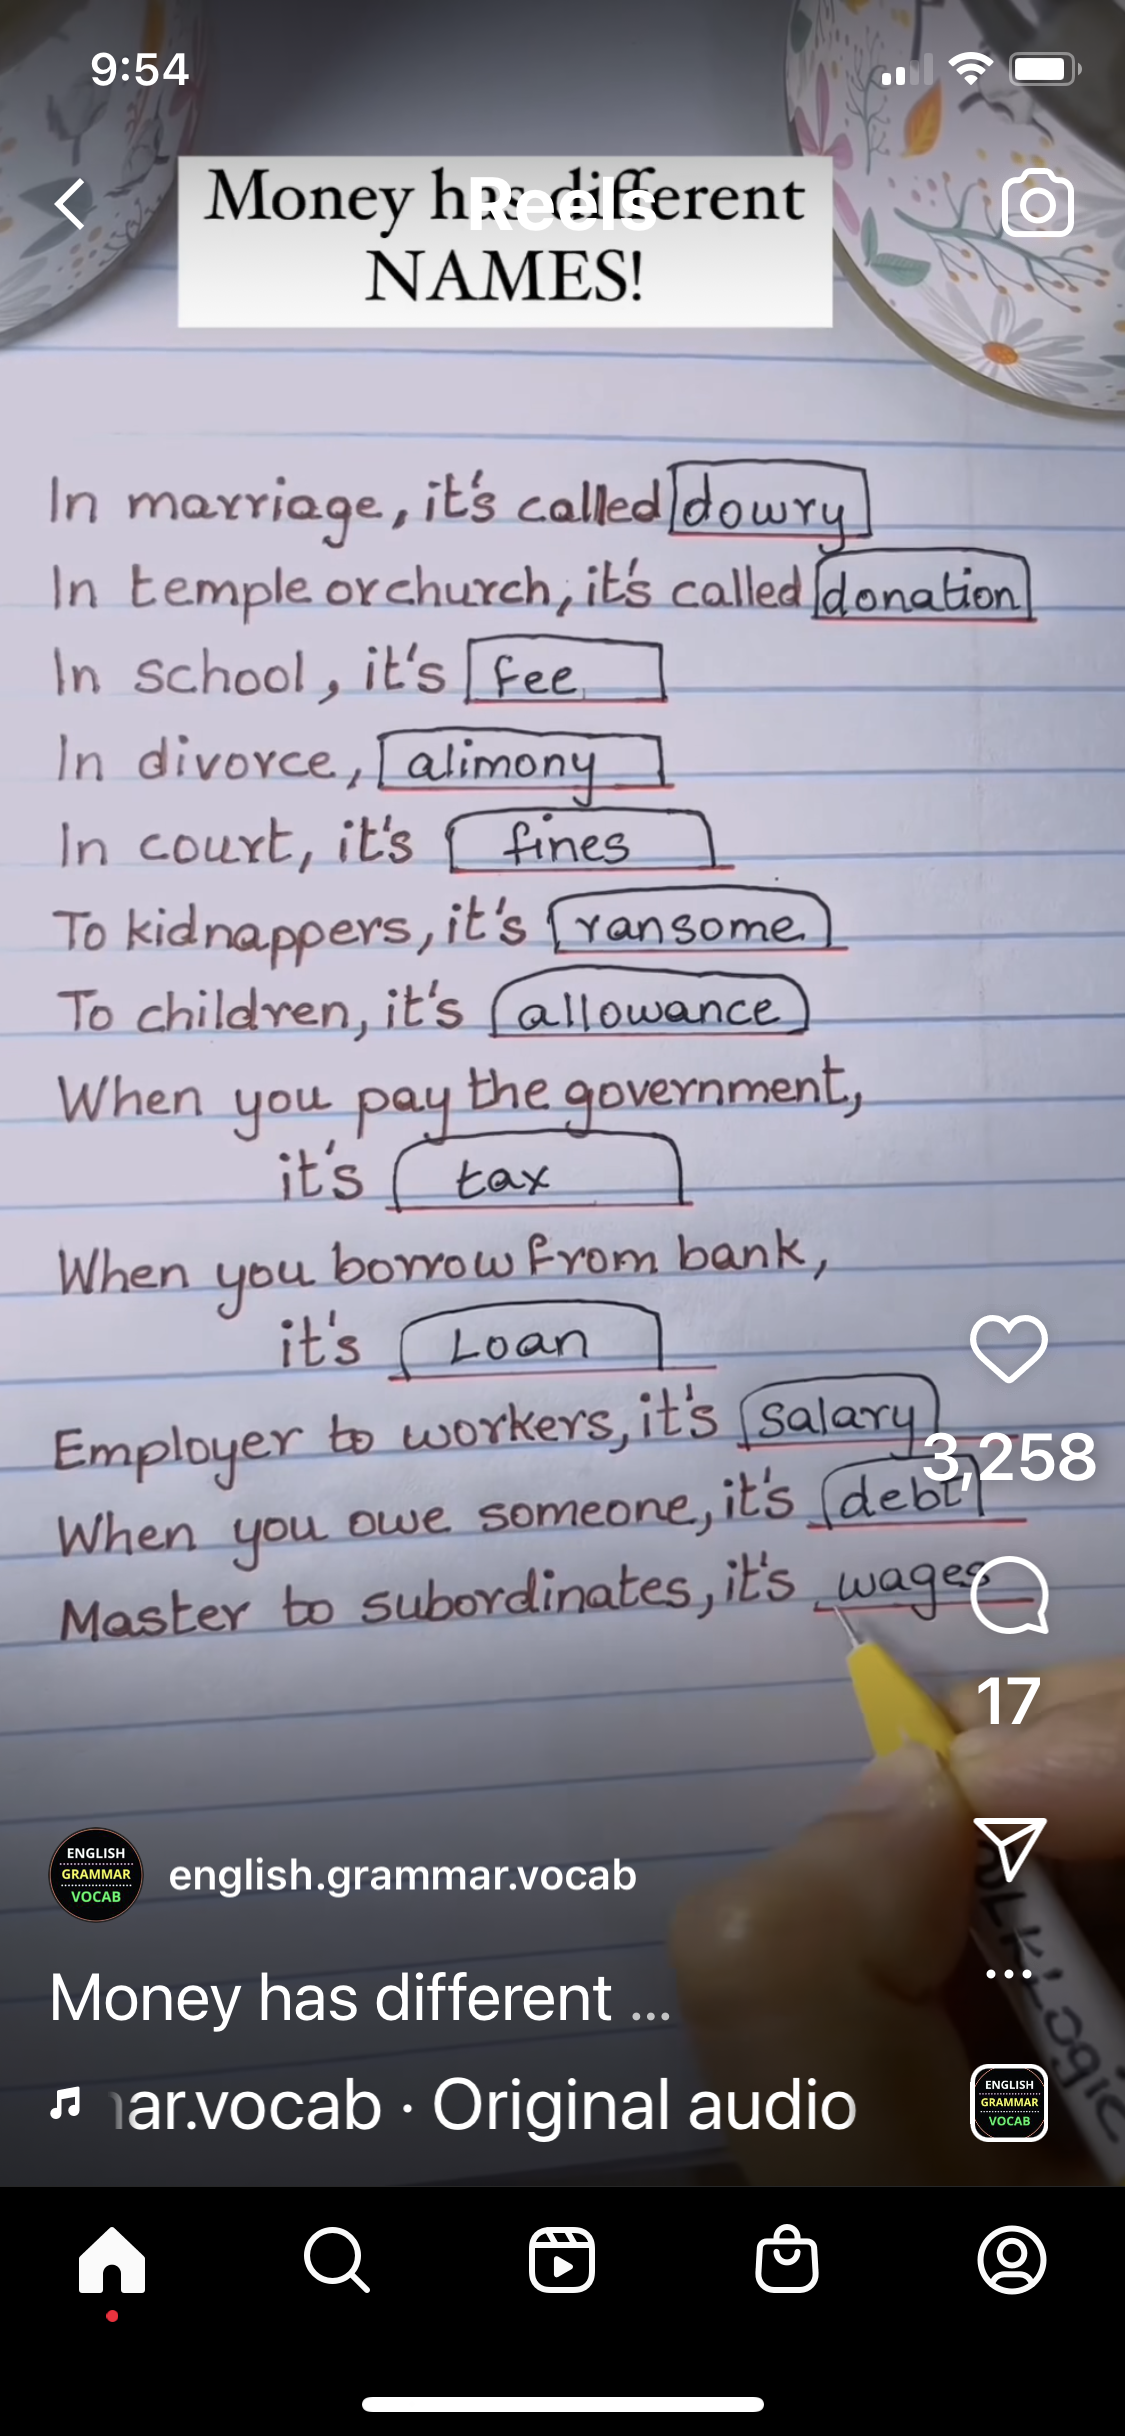 9:54
Money has different
Reels
NAMES!
In marriage, it's called dowry
In temple or church, it's called donation
In school, it's fee
In divorce, alimony
In court, it's fines
To kidnappers, it's ransome
To children, it's allowance
When you pay the government,
it's tax
When you borrow from bank,
it's Loan
Employer to workers, it's salary
3,258
When you owe someone, it's debt
Master to subordinates, it's wages
17
ENGLISH
GRAMMAR
VOCAB
english.grammar.vocab
Money has different ...
ar.vocab · Original audio
ENGLISH
GRAMMAR
VOCAB